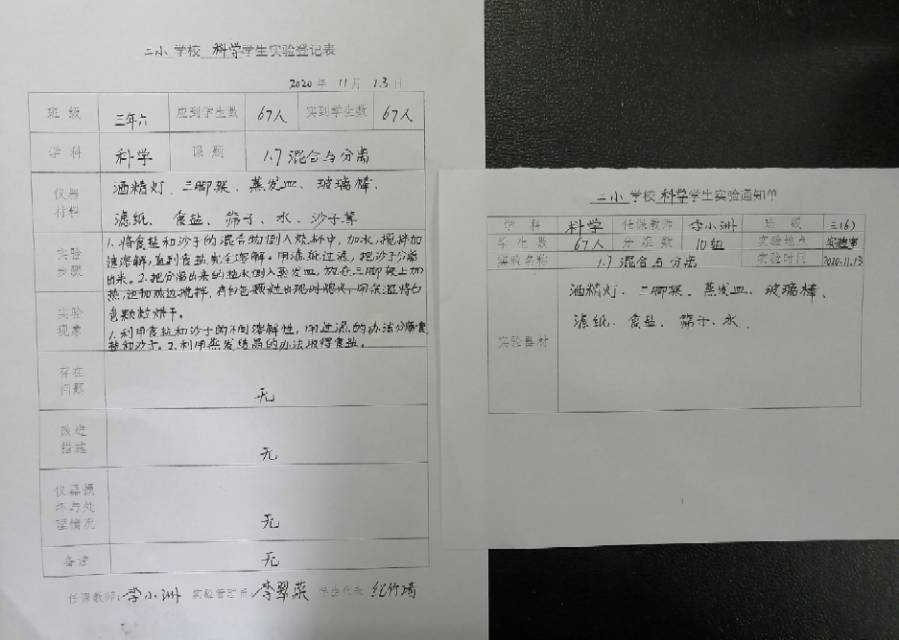 二小 学校 科学学生实验登记表
2020 年 11 月 13 日
班级 三年六 应到学生数 67人 实到学生数 67人
学科 科学 课题 1.7 混合与分离
仪器材料 酒精灯、三脚架、蒸发皿、玻璃棒、
滤纸、食盐、筛子、水、沙子等
实验步骤 1.将食盐和沙子的混合物倒入烧杯中,加水,搅拌加
速溶解,直到食盐完全溶解。用滤纸过滤,把沙子分离
出来。2.把分离出来的盐水倒入蒸发皿,放在三脚架上加
热,边加热边搅拌,有白色颗粒出现时熄火,用余温将白
色颗粒烘干。
实验现象 1.利用食盐和沙子的不同溶解性,用过滤的办法分离食
盐和沙子。2.利用蒸发结晶的办法取得食盐。
存在问题 无
改进措施 无
仪器损坏与处理情况 无
备注 无
任课教师:李小洲 实验管理员:李翠荣 学生代表
二小 学校 科学学生实验通知单
学科 科学 任课教师 李小洲 班级 三(6)
学生数 67人 分组数 10组 实验地点 实验室
实验名称 1.7 混合与分离 实验时间 2020.11.13
实验器材 酒精灯、三脚架、蒸发皿、玻璃棒、
滤纸、食盐、筛子、水、